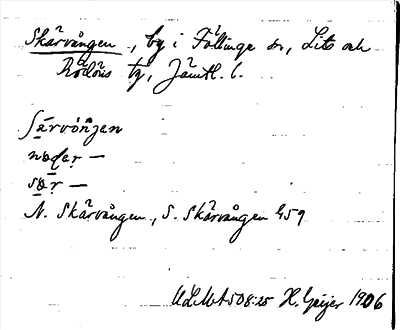 Skärvången, by i Föllinge sn, Lits och
Rödöns tg, Jämtl. l.
særvóŋen
noḍer —
sør —
N. Skärvången, S. Skärvången G59
ULMA 508:25 H. Geijer 1906